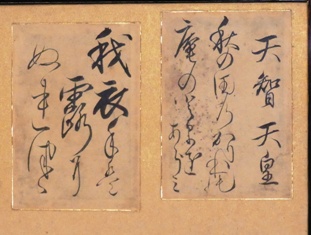 天智天皇
秋の田乃かりほ能
庵のとまを
あらミ
我衣手盤
露耳
ぬれ徒ゝ